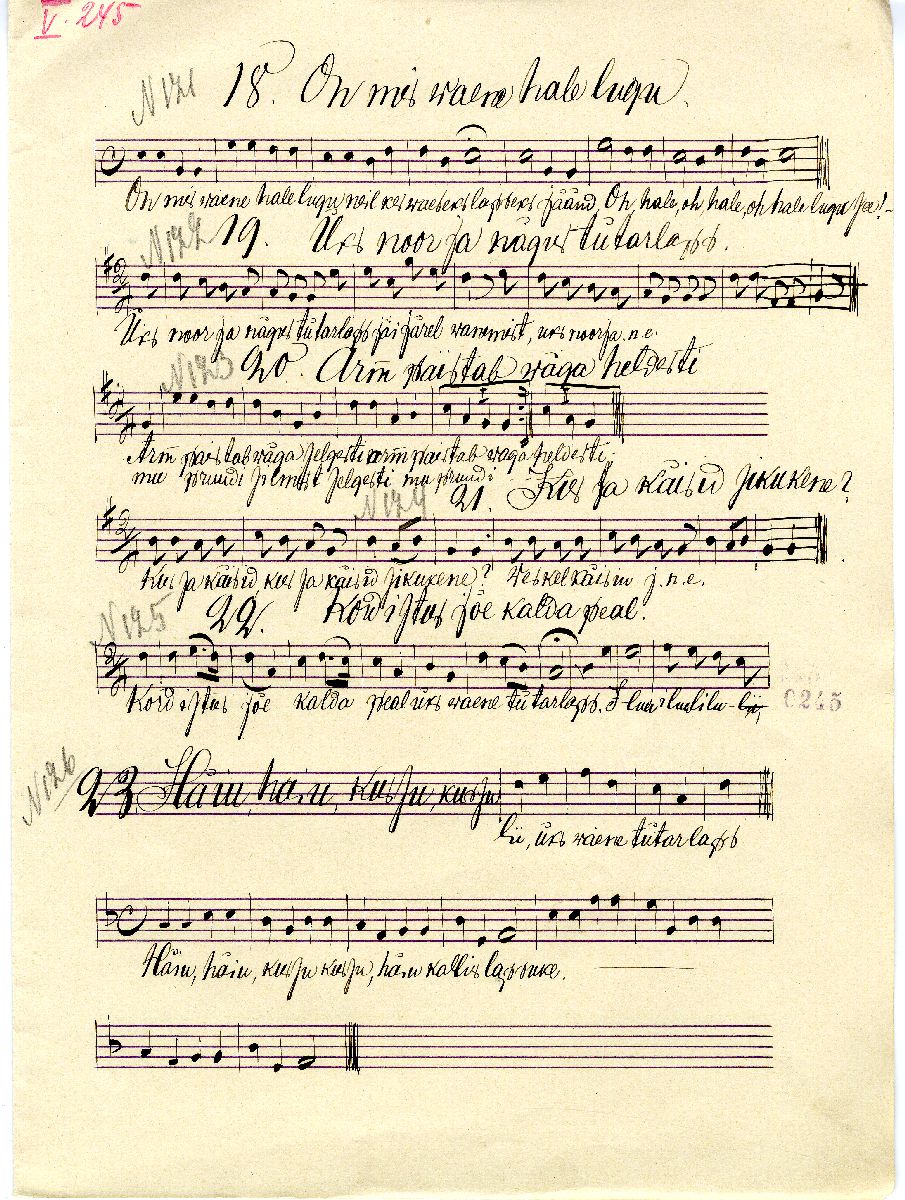 V. 245
N 121
18. Oh mis waene hale lugu.
Oh mis waene hale lugu neil kes waeseks lapseks jäänd, Oh, hale, oh, hale, oh hale lugu see!
N 122
19. Üks noor ja nägus tütarlaps.
Üks noor ja nägus tütarlaps jäi järel wanemist, üks noor ja. n. e.
N 123
20. Arm paistab wäga heldesti
Arm paistab wäga selgesti arm paistab wäga heldesti,
mu pruudi silmist selgesti mu pruudi
N 124
21. Kus sa käisid sikukene?
Kus sa käisid, kus sa käisid sikukene? Weskel käisin j. n. e.
N 125
22. Kord istus jõe kalda peal.
Kord istus jõe kalda peal üks waene tütarlaps.
0245
N 126
23. Häin, häin, kussu, kussu
lü, üks waene tütarlaps
Häin, häin, kussu kussu, häin kallis lapsuke.